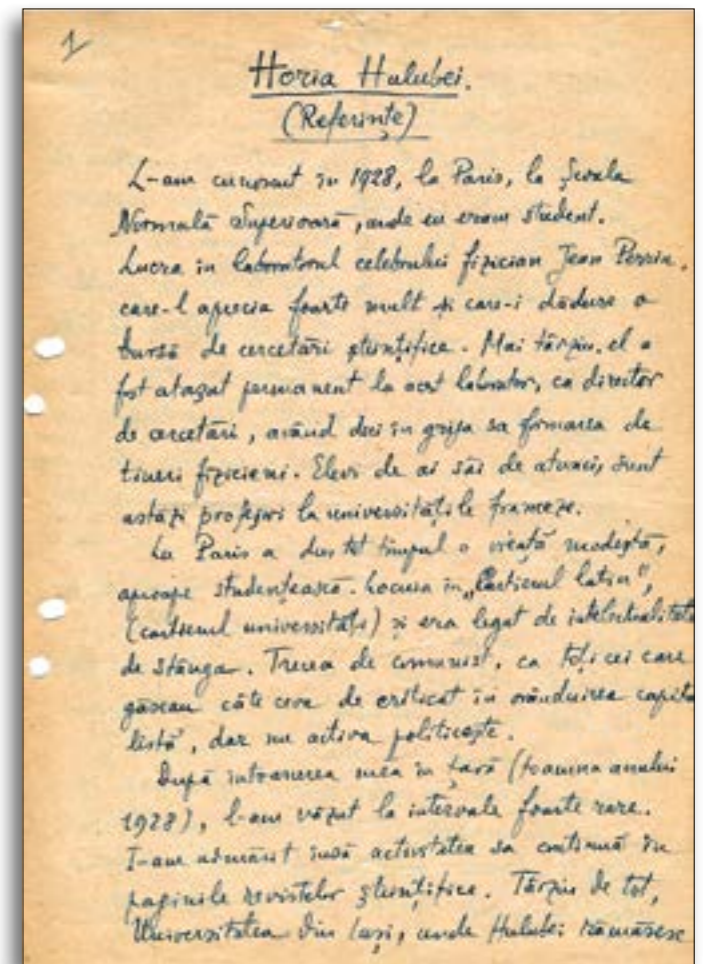 1
Horia Hulubei.
(Referințe)
L-am cunoscut în 1928, la Paris, la Școala
Normală Superioară, unde eu eram student.
Lucra în laboratorul celebrului fizician Jean Perrin,
care-l aprecia foarte mult și care-i dăduse o
bursă de cercetări științifice. Mai târziu, el a
fost atașat permanent la acest laborator, ca director
de cercetări, având deci în grija sa formarea de
tineri fizicieni. Elevi de ai săi de atunci, sunt
astăzi profesori la universitățile franceze.
La Paris a dus tot timpul o vieață modestă,
aproape studențească. Locuia în „Cartierul latin",
(cartierul universității) și era legat de intelectualitatea
de stânga. Trecea de comunist, ca toți cei care
găseau câte ceva de criticat în orânduirea capita
listă, dar nu activa politicește.
După întoarcerea mea în țară (toamna anului
1928), l-am văzut la intervale foarte rare.
I-am urmărit însă activitatea sa continuă în
paginile revistelor științifice. Târziu de tot,
Universitatea din Iași, unde Hulubei rămăsese